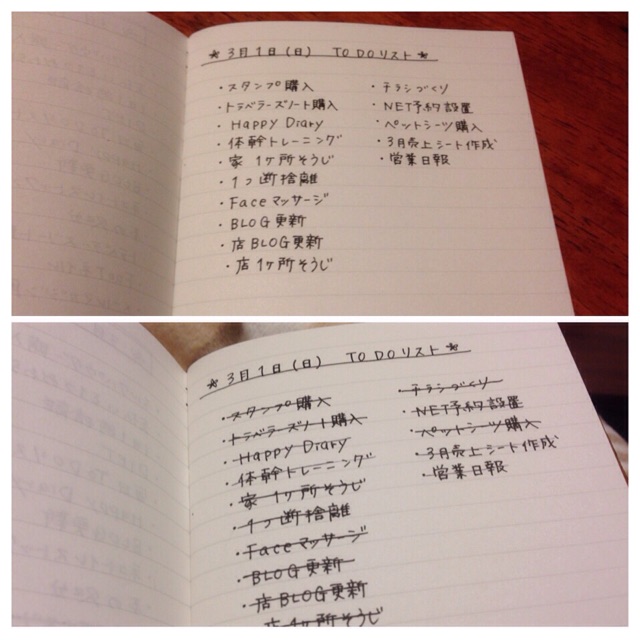 ★ 3月1日(日) TO DOリスト ★
・スタンプ購入
・トラベラーズノート購入
・Happy Diary
・体幹トレーニング
・家 1ヶ所そうじ
・1つ断捨離
・Faceマッサージ
・BLOG更新
・店BLOG更新
・店1ヶ所そうじ
・チラシづくり
・NET予約設置
・ペットシーツ購入
・3月売上シート作成
・営業日報
★ 3月1日(日) TO DOリスト ★
・スタンプ購入
・トラベラーズノート購入
・Happy Diary
・体幹トレーニング
・家 1ヶ所そうじ
・1つ断捨離
・Faceマッサージ
・BLOG更新
・店BLOG更新
店1ヶ所そうじ
・チラシづくり
・NET予約設置
・ペットシーツ購入
・3月売上シート作成
・営業日報